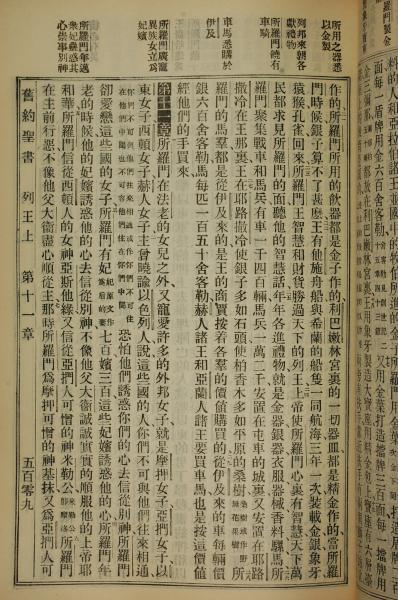 所用之器悉
以金製
列邦來朝各
獻禮物
所羅門饒有
車騎
車馬悉購於
伊及
所羅門廣寵
異族女立為
妃嬪
所羅門年邁
衆妃蠱惑其
心崇事別神
作的所羅門所用的飲器都是金子作的利巴嫩林宮裏的一切器皿都是精金作的當所羅
門時候銀子算不了甚麼王有他施舟船與希蘭的船隻一同航海三年一次裝載金銀象牙
猿猴孔雀回來所羅門王智慧和財貨勝過天下的列王上帝使所羅門心裏有智慧天下萬
民都求見所羅門的面聽他的智慧話年年各進禮物就是金器銀器衣服器械香料騾馬所
羅門聚集戰車和馬兵有車一千四百輛馬兵一萬二千安置在屯車的城裏又安置在耶路
撒冷在王那裏王在耶路撒冷使銀子多如石頭使柏香木多如平原的桑樹桑樹或作野無花果樹所
羅門的馬羣都是從伊及來的是王的商賈按着各羣的價值購買的從伊及來的車每輛價
銀六百舍客勒馬每匹一百五十舍客勒赫人諸王和亞蘭人諸王要買車馬也是按這價值
經他們的手買來
第十一章所羅門在法老的女兒之外又寵愛許多的外邦女子就是摩押女子亞捫女子以
東女子西頓女子赫人女子主曾曉諭以色列人說這些國的人你們不可與他們往來相通
恐怕他們誘惑你們的心去信從別神所羅門
卻愛戀這些國的女子所羅門有妃七百嬪三百這些妃嬪誘惑他的心所羅門年
老的時候他的妃嬪誘惑他的心去信從別神不像他父大衛誠誠實實的順服他的上帝耶
和華所羅門信從西頓人的女神亞斯他綠又信從亞捫人可憎的神米勒公所羅門
在主前行惡不像他父大衛盡心順從主那時所羅門為摩押可憎的神基抹又為亞捫人可
舊約聖書 列王上 第十一章 五百零九